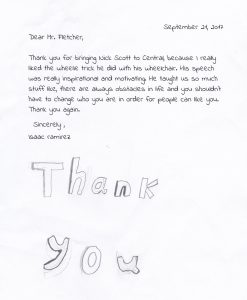 September 21, 2017
Dear Mr. Fletcher,
Thank you for bringing Nick Scott to Central, because I really
liked the wheelie trick he did with his wheelchair. His speech
was really inspirational and motivating. He taught us so much
stuff like, there are always obstacles in life and you shouldn't
have to change who you are in order for people can like you.
Thank you again.
Sincerely,
Isaac ramirez
Thank
you